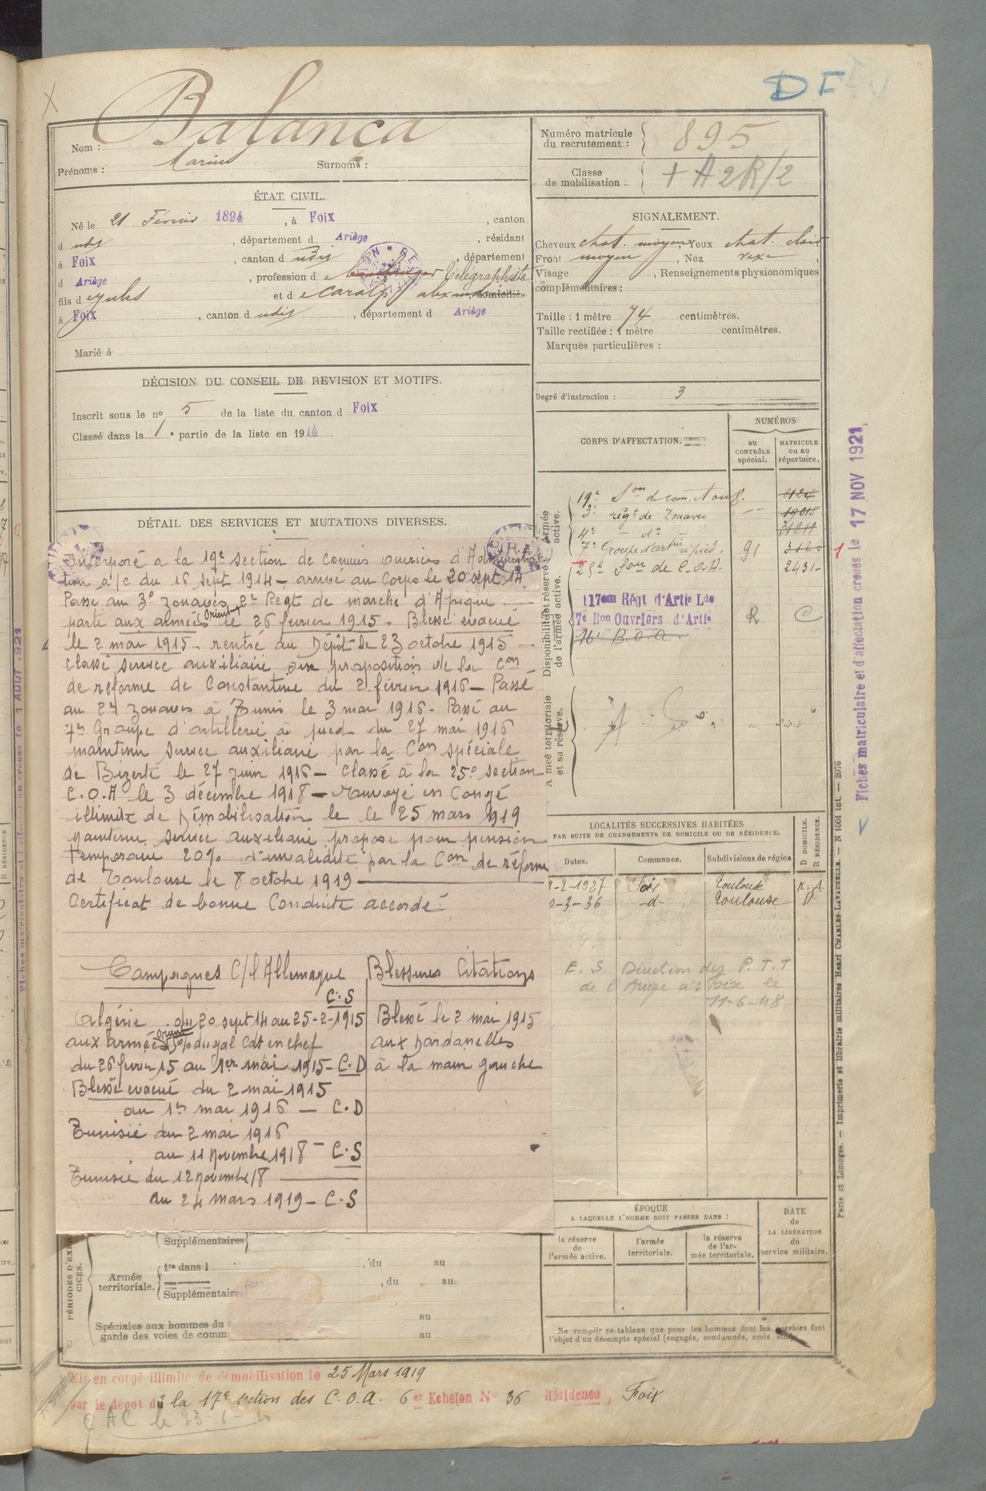 DF
Nom : Balança
Prénoms : Marius Surnoms :
ÉTAT CIVIL.
Né le 21 Février 1894, à Foix, canton
d udit, département d Ariège, résidant
à Foix, canton d udit, département
d Ariège, profession d e télégraphiste
fils d e Jules et d e domiciliés
à Foix, canton d udit, département d Ariège
Marié à
DÉCISION DU CONSEIL DE REVISION ET MOTIFS.
Inscrit sous le nº 5 de la liste du canton d Foix
Classé dans la 1e partie de la liste en 1914.
DÉTAIL DES SERVICES ET MUTATIONS DIVERSES.
Incorporé a la 19e section de commis ouvriers d'Administra-
tion a/c du 16 sept 1914 – arrivé au Corps le 20 sept. 14.
Passé au 3e zouaves 2e Regt de marche d'Afrique
parti aux armées Orient le 26 février 1915. Blessé évacué
le 2 mai 1915 – rentré au Dépôt le 23 octobre 1915
classé service auxiliaire sur proposition de la Con
de réforme de Constantine du 2 février 1916 – Passé
au 4e zouaves à Tunis le 3 mai 1916. Passé au
7e Groupe d'artillerie à pied du 27 mai 1916
maintenu service auxiliaire par la Con spéciale
de Bizerte le 27 juin 1916 – classé à la 25e section
C.O.A le 3 décembre 1918 – Renvoyé en Congé
illimité de Démobilisation le le 25 mars 1919
maintenu service auxiliaire propose pour pension
temporaire 20% d'invalidité par la Con de réforme
de Toulouse le 8 octobre 1919
Certificat de bonne Conduite accordé
Campagnes C/l'Allemagne
C.S
Algérie du 20 sept 14 au 25-2-1915
aux armées Orient du gal Cdt en chef
du 26 fevrier 15 au 1er mai 1915 – C.D
Blessé évacué du 2 mai 1915
au 1er mai 1916 – C.D
Tunisie du 2 mai 1916
au 11 Novembre 1918 – C.S
Tunisie du 12 Novembre 18
au 24 mars 1919 – C.S
Blessures Citations
Blessé le 2 mai 1915
aux Dardanelles
à la main gauche
PÉRIODES D'EXERCICES.
Supplémentaires
Armée territoriale.
1re dans l , du au
Supplémentaire , du au
Spéciales aux hommes du
garde des voies de comm
au
au
Mis en congé illimité de démobilisation le 25 Mars 1919
par le dépôt de la 17e section des C.O.A. 6e Echelon N° 36 Résidence, Foix
Numéro matricule du recrutement : 895
Classe de mobilisation : + A2R/2
SIGNALEMENT.
Cheveux chat. moyen Yeux chat. clair
Front moyen, Nez
Visage , Renseignements physionomiques
complémentaires :
Taille : 1 mètre 74 centimètres.
Taille rectifiée : 1 mètre centimètres.
Marques particulières :
Degré d'instruction : 3
CORPS D'AFFECTATION.
NUMÉROS
au CONTRÔLE spécial.
MATRICULE ou au répertoire.
Armée active.
19e Son de com. d'ouv.
3e régt de Zouaves
4e – do
7e Groupe d'artie à pied. 91
25e Son de C.O.A. 2431
Disponibilité et réserve de l'armée active.
117eme Régt d'Artie Lde
17e Bon Ouvriers d'Artie R C
16e B.O.A.
Armée territoriale et sa réserve.
Fiches matriculaire et d'affectation creees le 17 NOV 1921
LOCALITÉS SUCCESSIVES HABITÉES
PAR SUITE DE CHANGEMENTS DE DOMICILE OU DE RÉSIDENCE.
Dates. Communes. Subdivisions de région D DOMICILE. R RÉSIDENCE.
-2-1927 Foix Toulouse
-3-36 -d- Toulouse D
E.S. Direction des P.T.T
de l'Ariège à Foix le
11-6-48
ÉPOQUE
A LAQUELLE L'HOMME DOIT PASSER DANS :
la réserve de l'armée active.
l'armée territoriale.
la réserve de l'armée territoriale.
DATE de LA LIBÉRATION du service militaire.
Ne remplir ce tableau que pour les hommes dont les services font
l'objet d'un décompte spécial (engagés, condamnés, omis, etc.)
Paris et Limoges. — Imprimerie et librairie militaires Henri CHARLES-LAVAUZELLE.